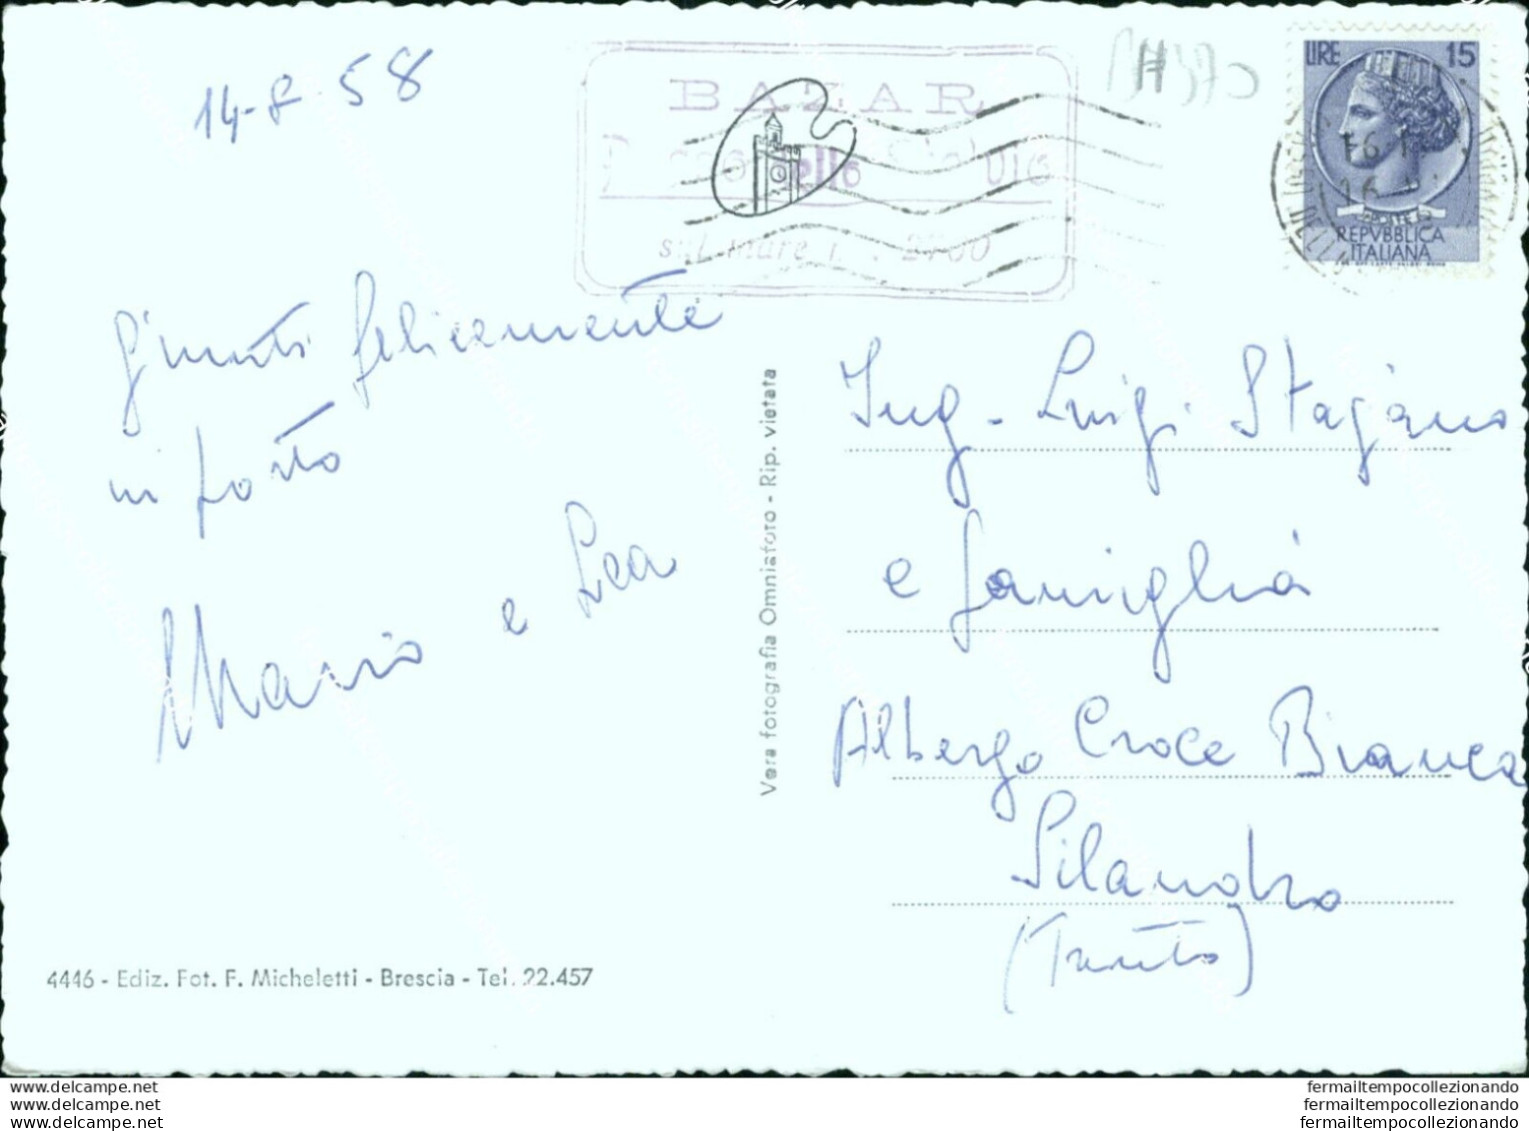 14-8-58
BAZAR
sul mare m. 2760
LIRE 15
REPVBBLICA
ITALIANA
Giunti felicemente
in porto
Mario e Lea
Vera fotografia Omniafoto - Rip. vietata
Ing. Luigi Stagano
e famiglia
Albergo Croce Bianca
Silandro
(Trento)
4446 - Ediz. Fot. F. Micheletti - Brescia - Tel. 22.457
www.delcampe.net
www.delcampe.net
www.delcampe.net
fermailtempocollezionando
fermailtempocollezionando
fermailtempocollezionando